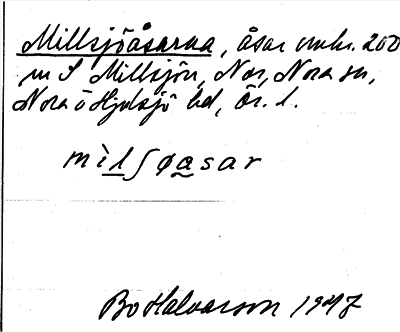 Millsjöåsarna, åsar omkr. 200
m S Millsjön, Nor, Nora sn,
Nora o Hjulsjö bd, Ör. l.
mìlʃøasar
Bo Halvarson 1947